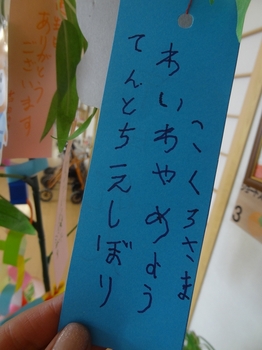 こくろさま
わいわやめよう
てんとちえしぼり
ありがとう
ございます
3